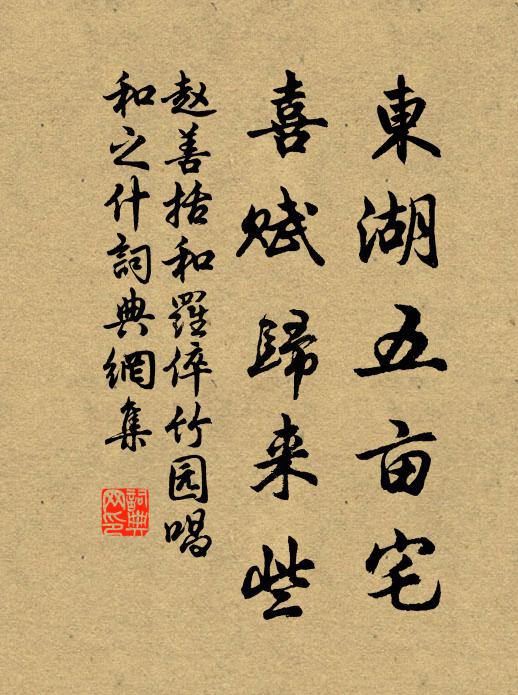 東湖五亩宅
喜赋歸来些
赵善括和羅倅竹园唱
和之什詞典網集
詞典
网印